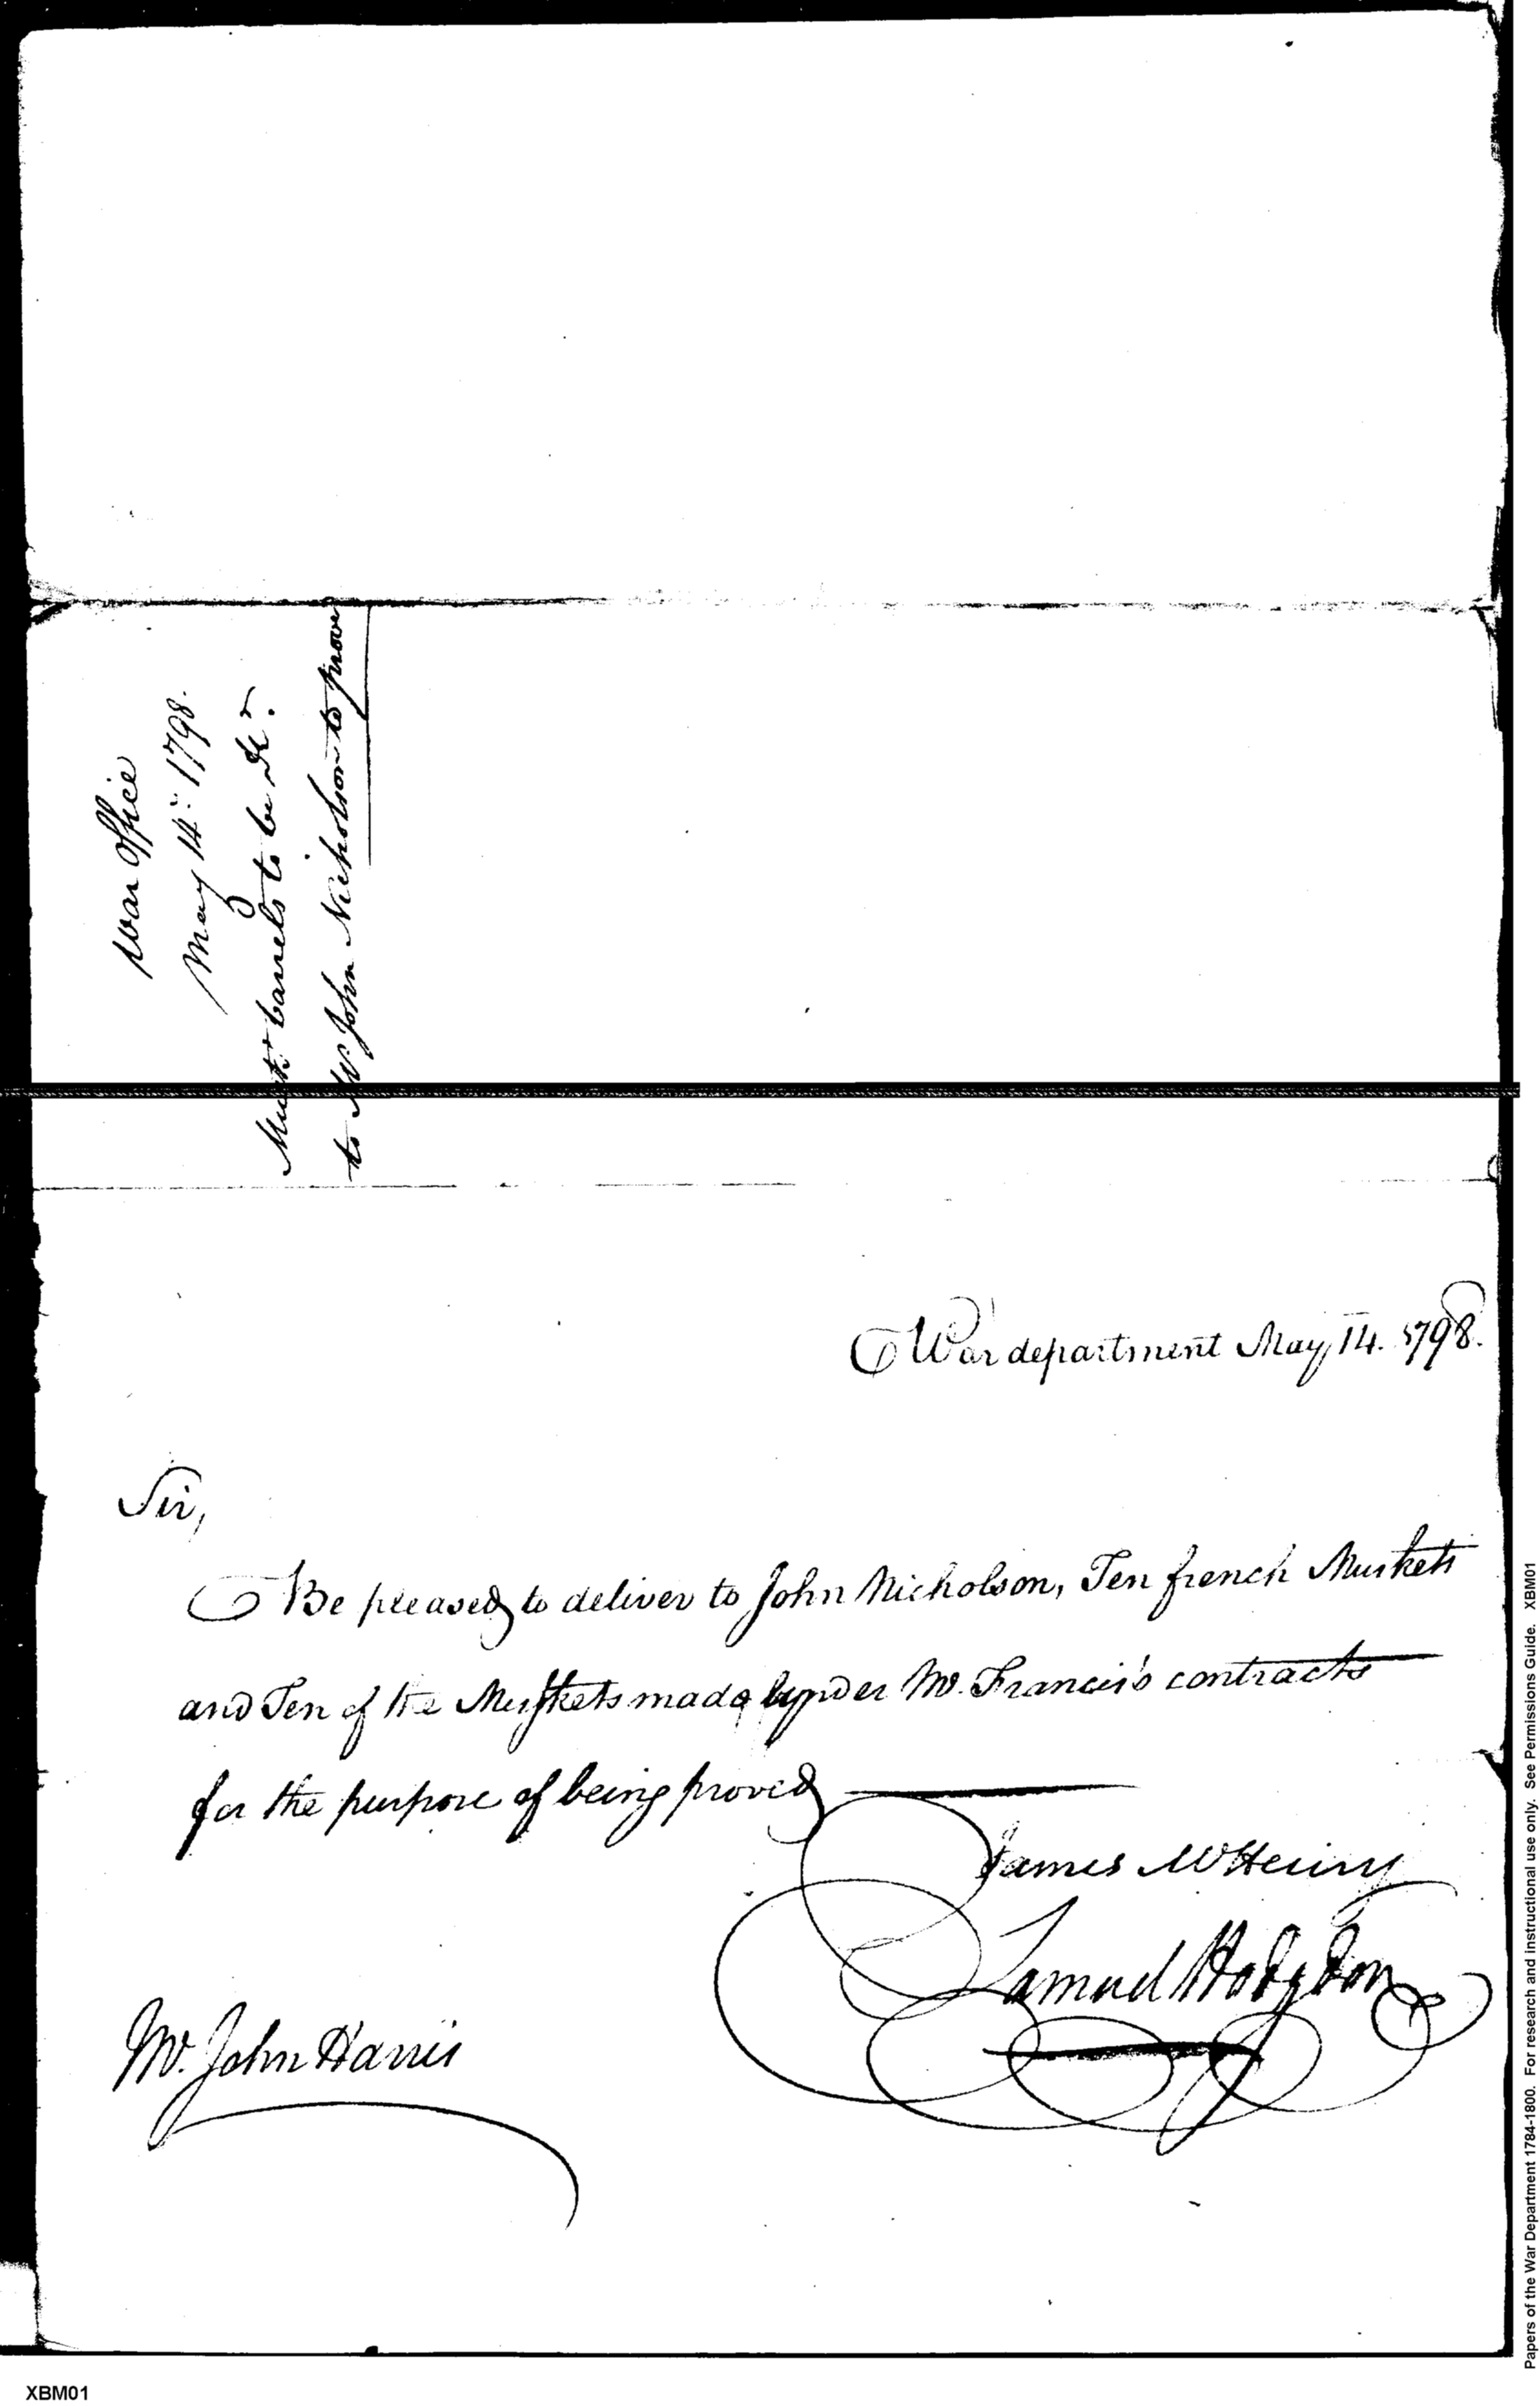 War Office
May 14th 1798.
Muskt barrels to be dd.
to Mr. John Nicholson to prove
War department May 14. 1798.
Sir,
Be pleased to deliver to John Nicholson, Ten french Muskets
and Ten of the Muskets made under Mr. Francis's contracts
for the purpose of being proved
James McHenry
Samuel Hodgdon
Mr. John Harris
Papers of the War Department 1784-1800. For research and instructional use only. See Permissions Guide. XBM01
XBM01